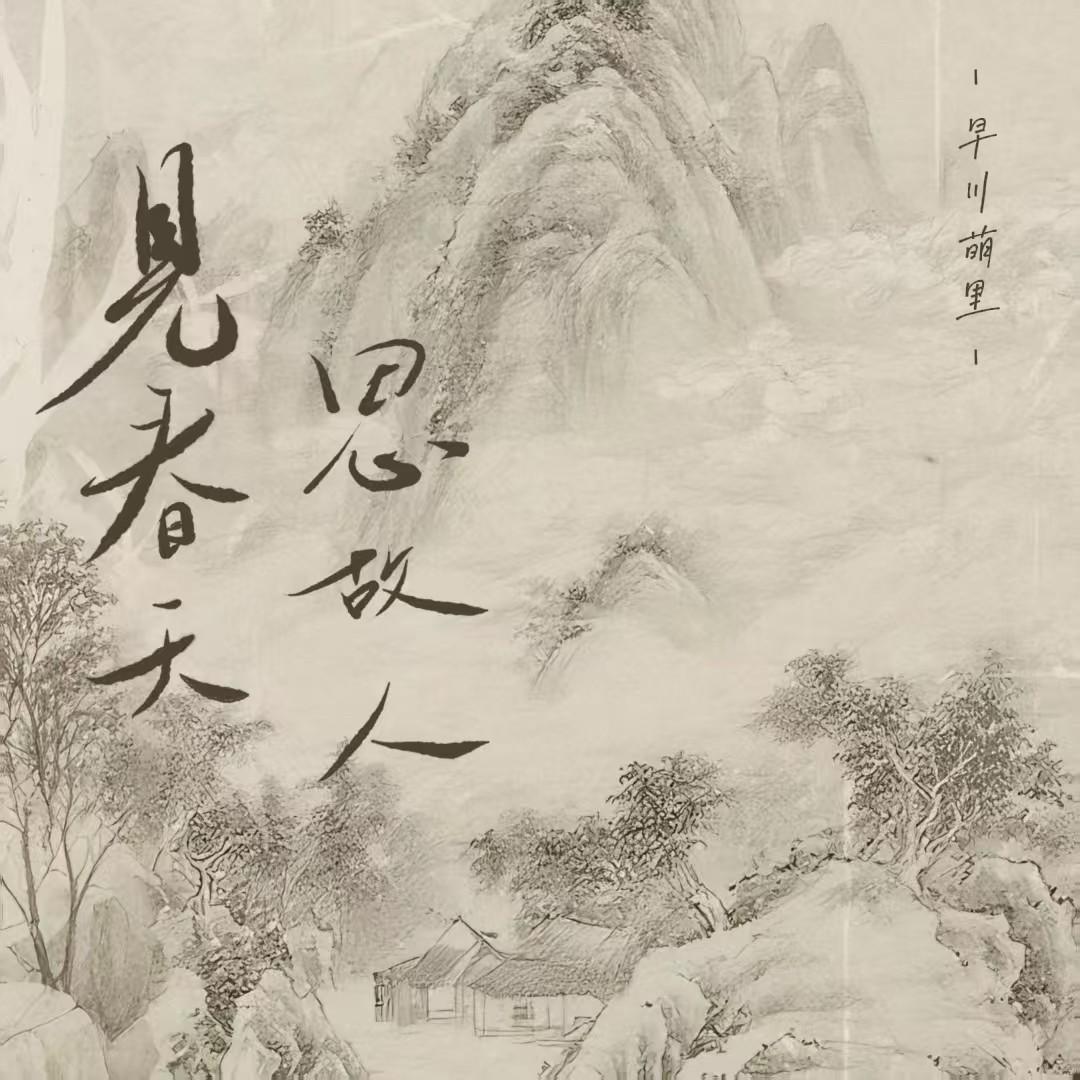 見春天
思故人
- 早川萌里 -